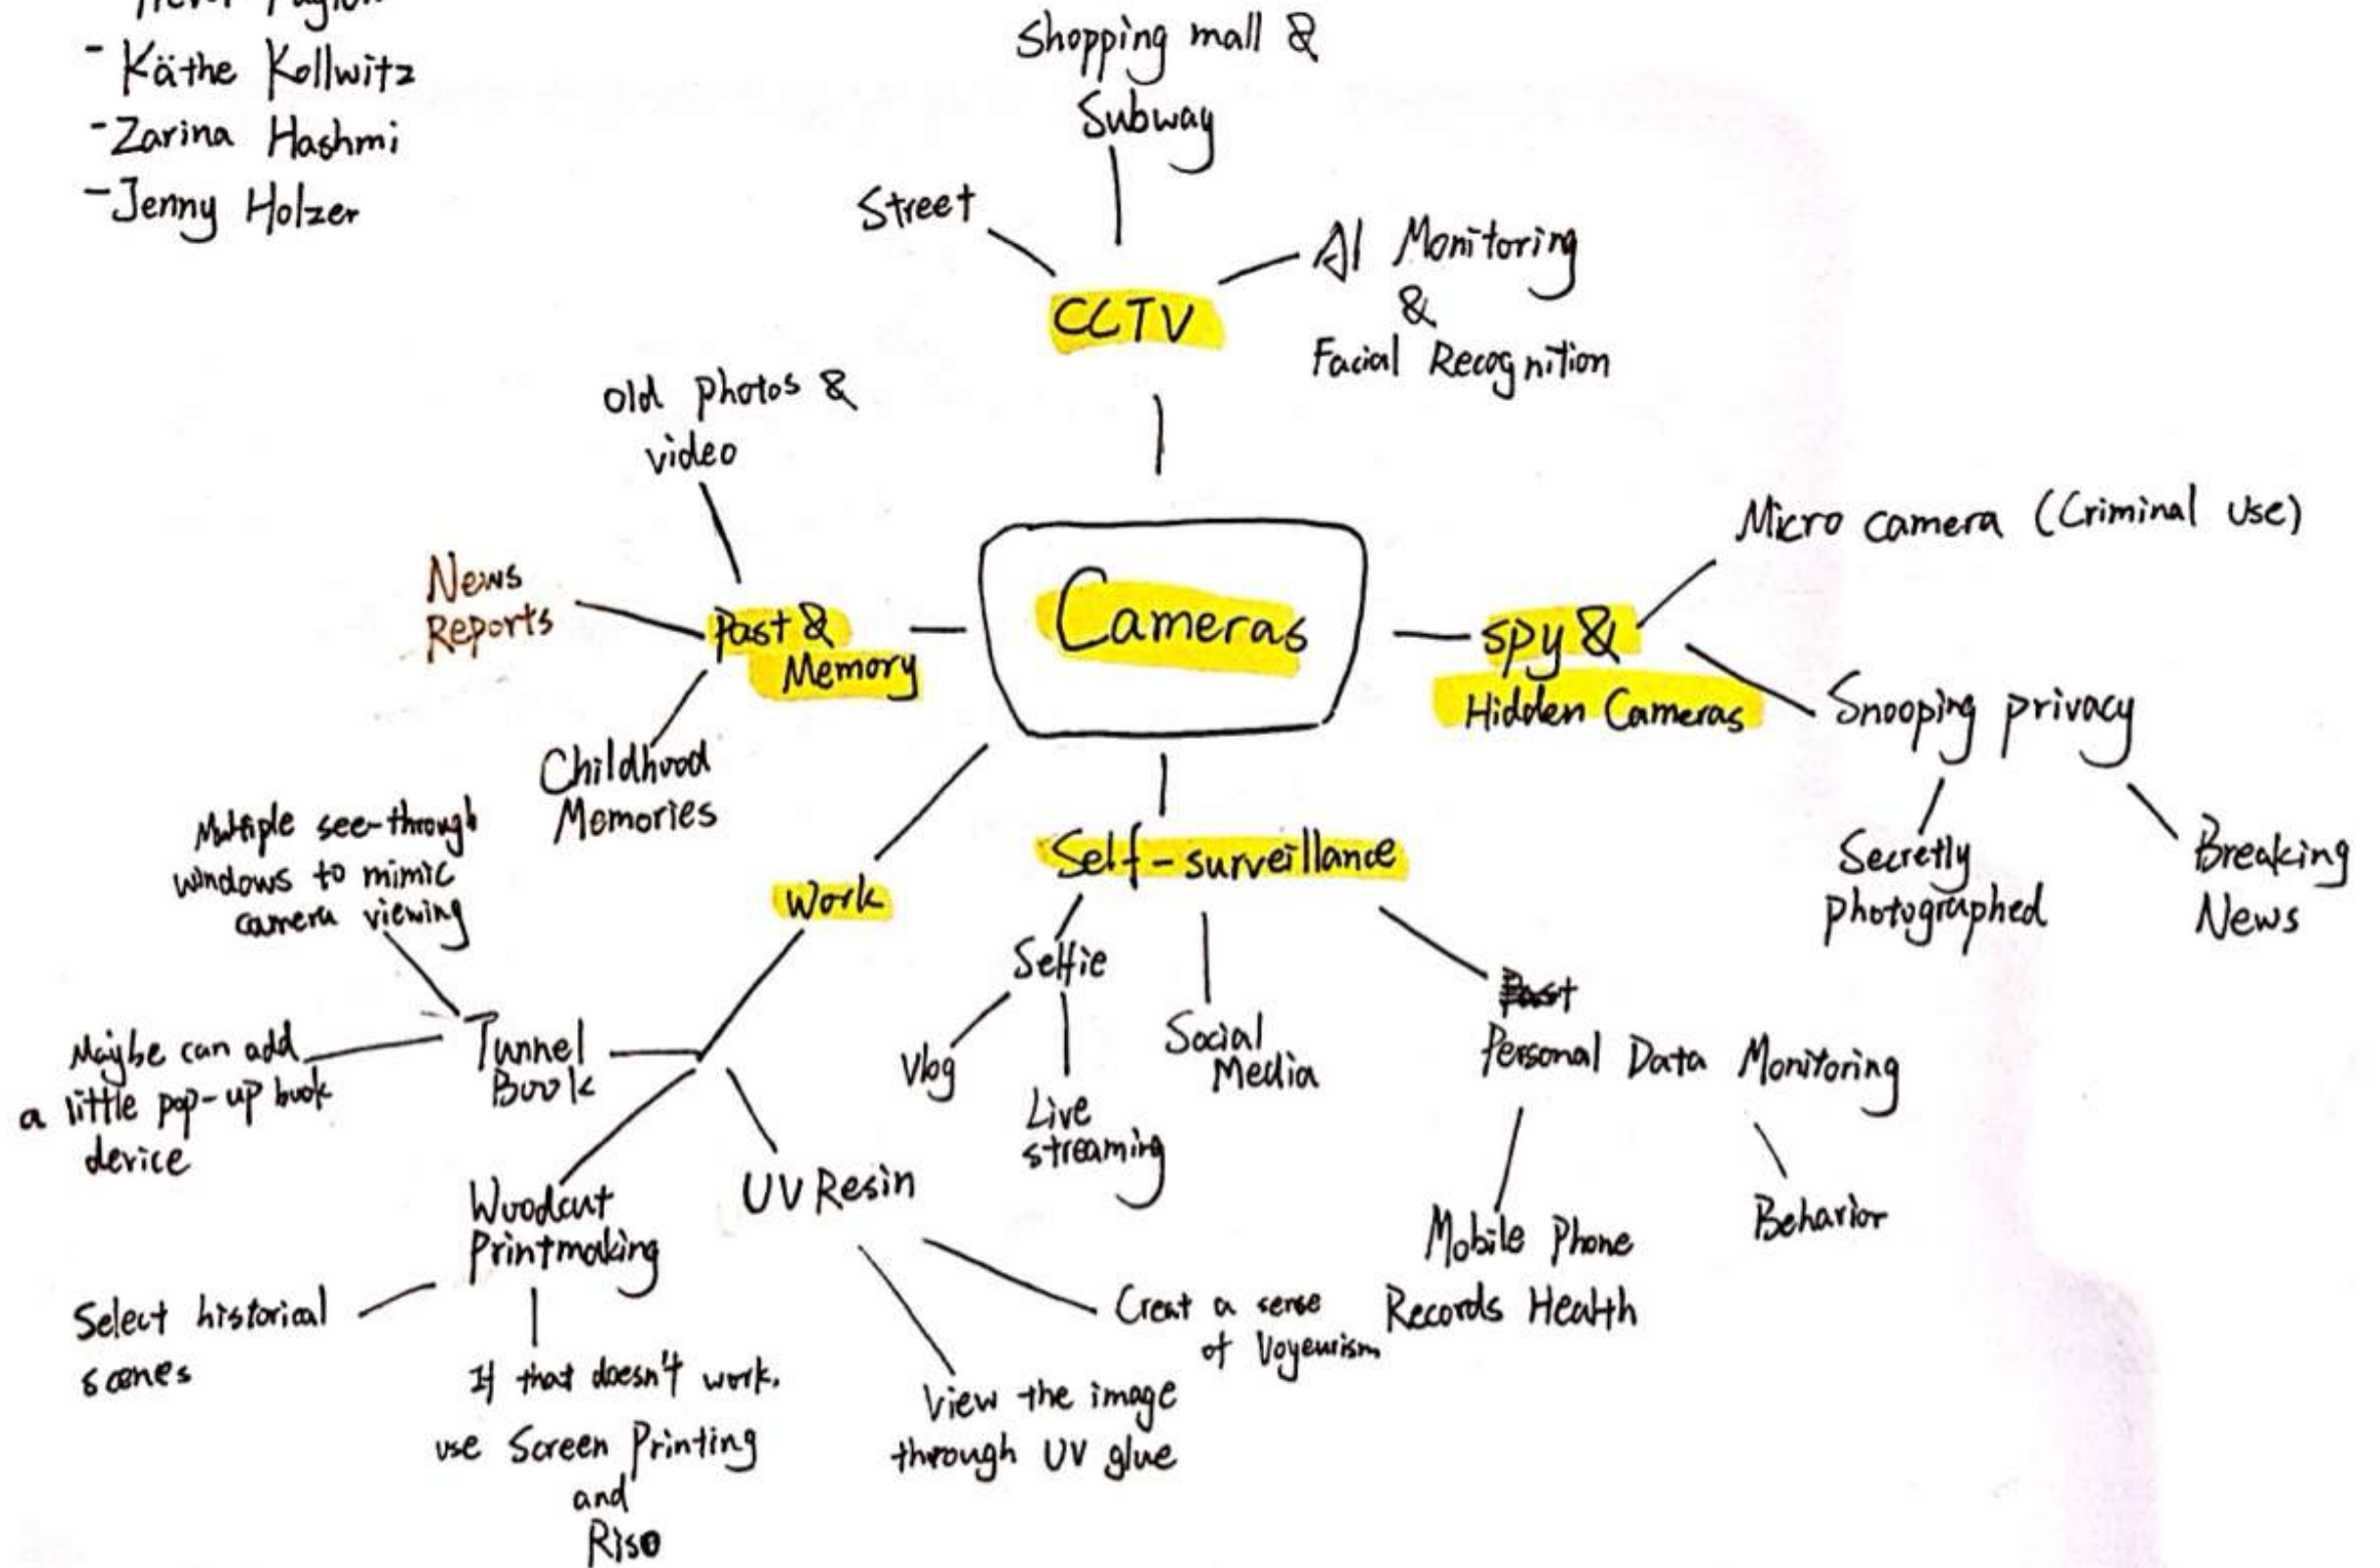 - Käthe Kollwitz
- Zarina Hashmi
- Jenny Holzer
Shopping mall &
Subway
Street
AI Monitoring
&
Facial Recognition
CCTV
Old photos &
video
News
Reports
Past &
Memory
Childhood
Memories
Cameras
Micro camera (Criminal Use)
Spy &
Hidden Cameras
Snooping privacy
Secretly
photographed
Breaking
News
Self-surveillance
Selfie
Vlog
Live
streaming
Social
Media
Personal Data Monitoring
Mobile Phone
Records Health
Behavior
Work
Multiple see-through
windows to mimic
camera viewing
Tunnel
Book
Maybe can add
a little pop-up book
device
Woodcut
Printmaking
Select historical
scenes
If that doesn't work,
use Screen Printing
and
Riso
UV Resin
Creat a sense
of Voyeurism
View the image
through UV glue